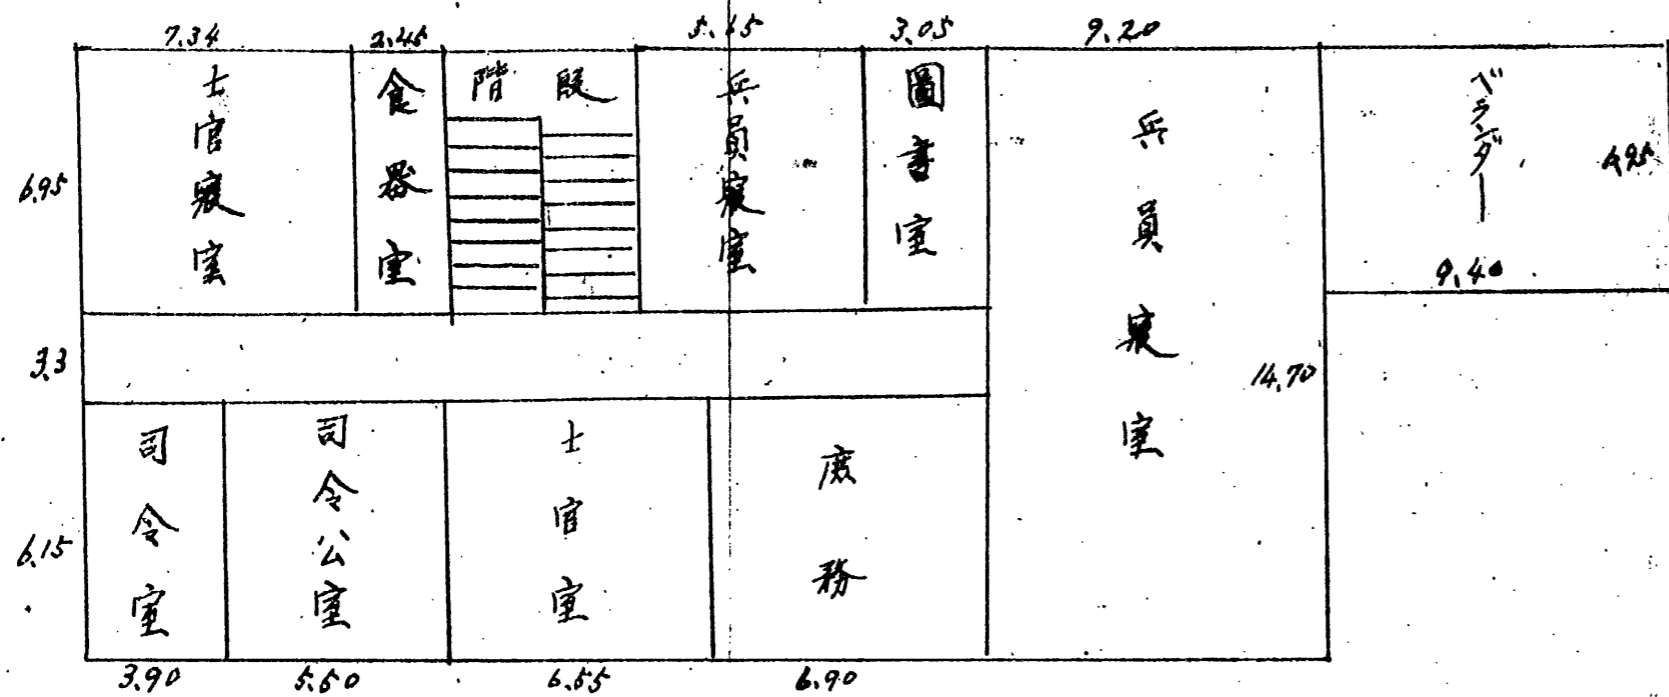 7.34
2.45
5.65
3.05
9.20
士官寢室
食器室
階段
兵員寢室
圖書室
兵員寢室
ベランダー
6.95
9.40
3.3
14.70
司令室
司令公室
士官室
庶務
6.15
3.90
6.55
6.90